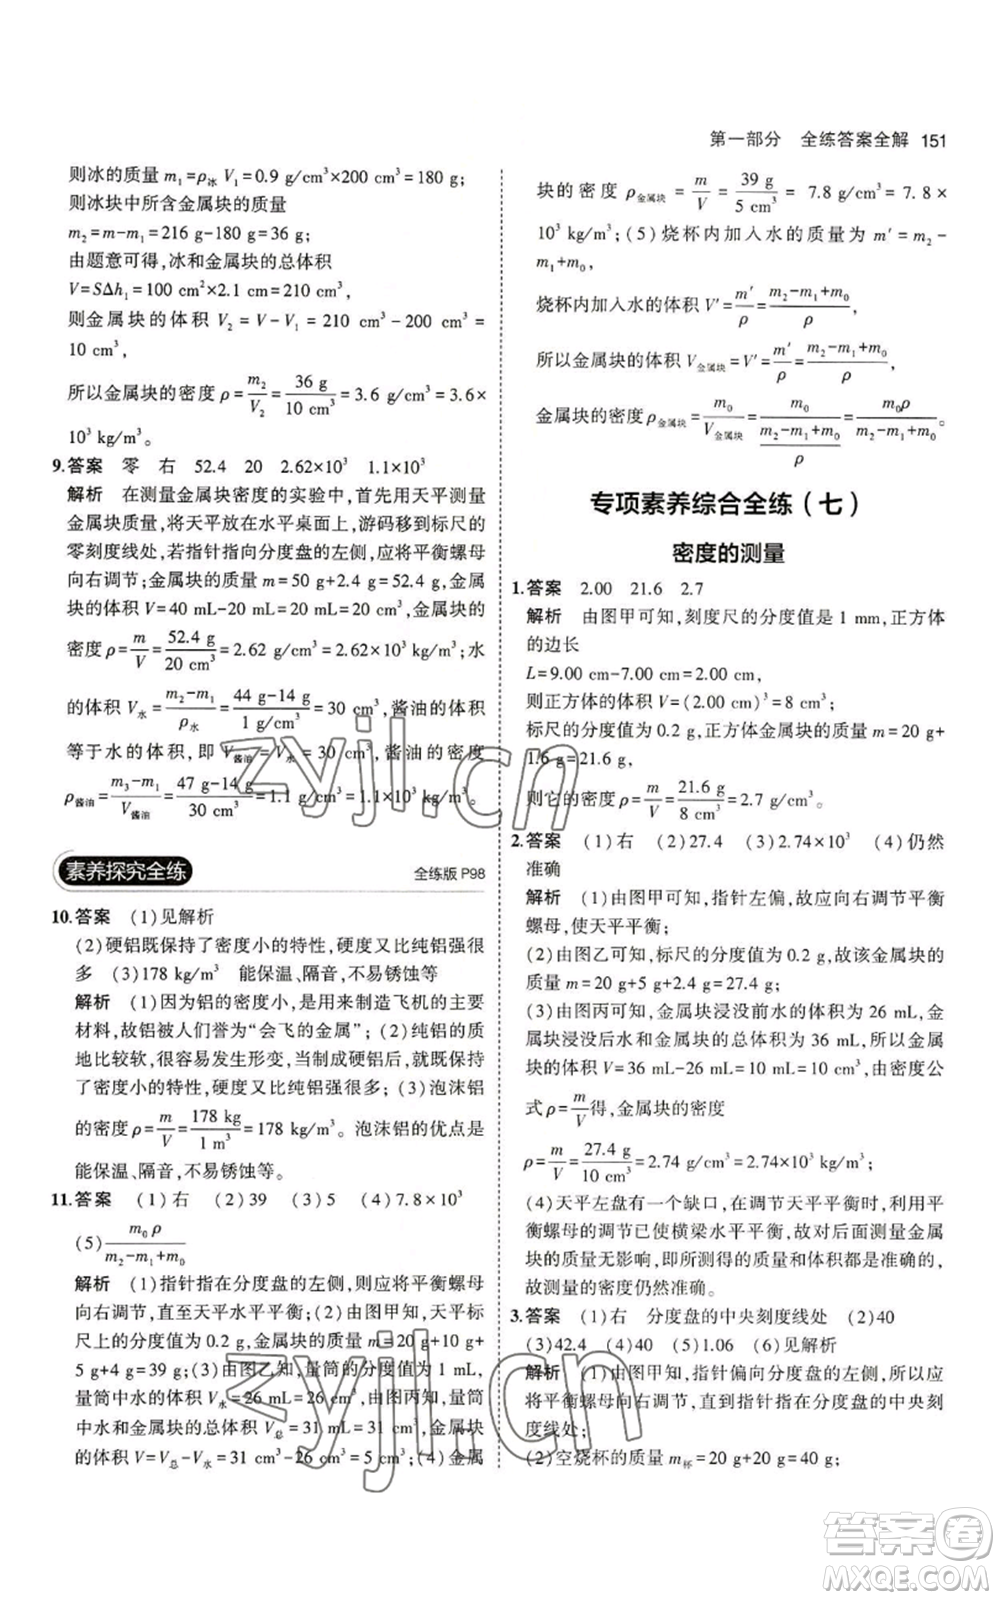 第一部分 全练答案全解 151
则冰的质量 m₁=ρ冰 V₁=0.9 g/cm³×200 cm³=180 g;
则冰块中所含金属块的质量
m₂=m-m₁=216 g-180 g=36 g;
由题意可得,冰和金属块的总体积
V=SΔh₁=100 cm²×2.1 cm=210 cm³,
则金属块的体积 V₂=V-V₁=210 cm³-200 cm³=
10 cm³,
所以金属块的密度 ρ=m₂/V₂=36 g/10 cm³=3.6 g/cm³=3.6×
10³ kg/m³。
9.答案 零 右 52.4 20 2.62×10³ 1.1×10³
解析 在测量金属块密度的实验中,首先用天平测量
金属块质量,将天平放在水平台上,游码移到标尺的
零刻度线处,若指针指向分度盘的左侧,应将平衡螺母
向右调节;金属块的质量 m=50 g+2.4 g=52.4 g,金属
块的体积 V=40 mL-20 mL=20 mL=20 cm³,金属块的
密度 ρ=m/V=52.4 g/20 cm³=2.62 g/cm³=2.62×10³ kg/m³;水
的体积 V水=(m₂-m₁)/ρ水=(44 g-14 g)/(1 g/cm³)=30 cm³,酱油的体积
等于水的体积,即 V酱油=V水=30 cm³,酱油的密度
ρ酱油=(m₃-m₁)/V酱油=(47 g-14 g)/30 cm³=1.1 g/cm³=1.1×10³ kg/m³。
素养探究全练 全练版 P98
10.答案 (1)见解析
(2)硬铝既保持了密度小的特性,硬度又比纯铝强很
多 (3)178 kg/m³ 能保温、隔音,不易锈蚀等
解析 (1)因为铝的密度小,是用来制造飞机的主要
材料,故铝被人们誉为“会飞的金属”;(2)纯铝的质
地比较软,很容易发生形变,当制成硬铝后,既保持
了密度小的特性,硬度又比纯铝强很多;(3)泡沫铝
的密度 ρ=m/V=178 kg/1 m³=178 kg/m³。泡沫铝的优点是
能保温、隔音,不易锈蚀等。
11.答案 (1)右 (2)39 (3)5 (4)7.8×10³
(5)m₀ρ/(m₂-m₁+m₀)
解析 (1)指针指在分度盘的左侧,则应将平衡螺母
向右调节,直至天平水平平衡;(2)由图甲知,天平标
尺上的分度值为 0.2 g,金属块的质量 m=20 g+10 g+
5 g+4 g=39 g;(3)由图乙知,量筒的分度值为 1 mL,
量筒中水的体积 V水=26 mL=26 cm³,由图丙知,量筒
中水和金属块的总体积 V总=31 mL=31 cm³,金属块
的体积 V=V总-V水=31 cm³-26 cm³=5 cm³;(4)金属
块的密度 ρ金属块=m/V=39 g/5 cm³=7.8 g/cm³=7.8×
10³ kg/m³;(5)烧杯内加入水的质量为 m′=m₂-
m₁+m₀,
烧杯内加入水的体积 V′=m′/ρ=(m₂-m₁+m₀)/ρ,
所以金属块的体积 V金属块=V′=m′/ρ=(m₂-m₁+m₀)/ρ,
金属块的密度 ρ金属块=m₀/V金属块=m₀/((m₂-m₁+m₀)/ρ)=m₀ρ/(m₂-m₁+m₀)。
专项素养综合全练(七)
密度的测量
1.答案 2.00 21.6 2.7
解析 由图甲可知,刻度尺的分度值是 1 mm,正方体
的边长
L=9.00 cm-7.00 cm=2.00 cm,
则正方体的体积 V=(2.00 cm)³=8 cm³;
标尺的分度值为 0.2 g,正方体金属块的质量 m=20 g+
1.6 g=21.6 g,
则它的密度 ρ=m/V=21.6 g/8 cm³=2.7 g/cm³。
2.答案 (1)右 (2)27.4 (3)2.74×10³ (4)仍然
准确
解析 (1)由图甲可知,指针左偏,故应向右调节平衡
螺母,使天平平衡;
(2)由图乙可知,标尺的分度值为 0.2 g,故该金属块的
质量 m=20 g+5 g+2.4 g=27.4 g;
(3)由图丙可知,金属块浸没前水的体积为 26 mL,金
属块浸没后水和金属块的总体积为 36 mL,所以金属
块的体积 V=36 mL-26 mL=10 mL=10 cm³,由密度公
式 ρ=m/V得,金属块的密度
ρ=m/V=27.4 g/10 cm³=2.74 g/cm³=2.74×10³ kg/m³;
(4)天平左盘有一个缺口,在调节天平平衡时,利用平
衡螺母的调节已使横梁水平平衡,故对后面测量金属
块的质量无影响,即所测得的质量和体积都是准确的,
故测量的密度仍然准确。
3.答案 (1)右 分度盘的中央刻度线处 (2)40
(3)42.4 (4)40 (5)1.06 (6)见解析
解析 (1)由图甲知,指针偏向分度盘的左侧,所以应
将平衡螺母向右调节,直到指针指在分度盘的中央刻
度线处;
(2)空烧杯的质量 m杯=20 g+20 g=40 g;
zyjl.cn
zyjl.cn
答案圈
MXQE.COM